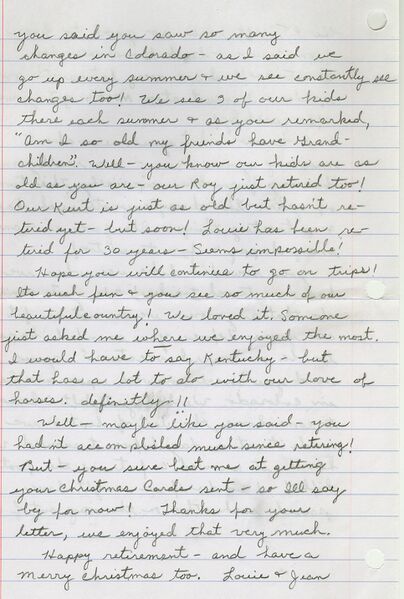 you said you saw so many
changes in Colorado - as I said we
go up every summer & we see constantly see
changes too! We see 3 of our kids
there each summer & as you remarked,
"Am I so old my friends have Grand-
children". Well - you know our kids are as
old as you are - our Roy just retired too!
Our Kurt is just as old but hasn't re-
tired yet - but soon! Louie has been re-
tired for 30 years - Seems impossible!
Hope you will continues to go on trips!
Its such fun & you see so much of our
beautiful country! We loved it. Someone
just asked me where we enjoyed the most.
I would have to say Kentucky - but
that has a lot to do with our love of
horses. definitly - !!
Well - maybe like you said - you
hadn't accomplished much since retiring!
But - you sure beat me at getting
your Christmas Cards sent - so I'll say
by for now! Thanks for your
letter, we enjoyed that very much.
Happy retirement - and have a
Merry Christmas too. Louie & Jean